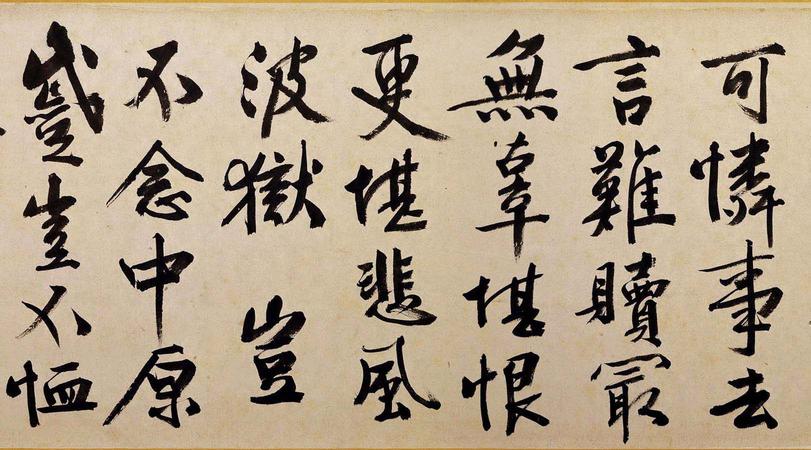 可憐事去
言難贖冣
無辜堪恨
更堪悲風
波獄 豈
不念中原
蹙豈不恤